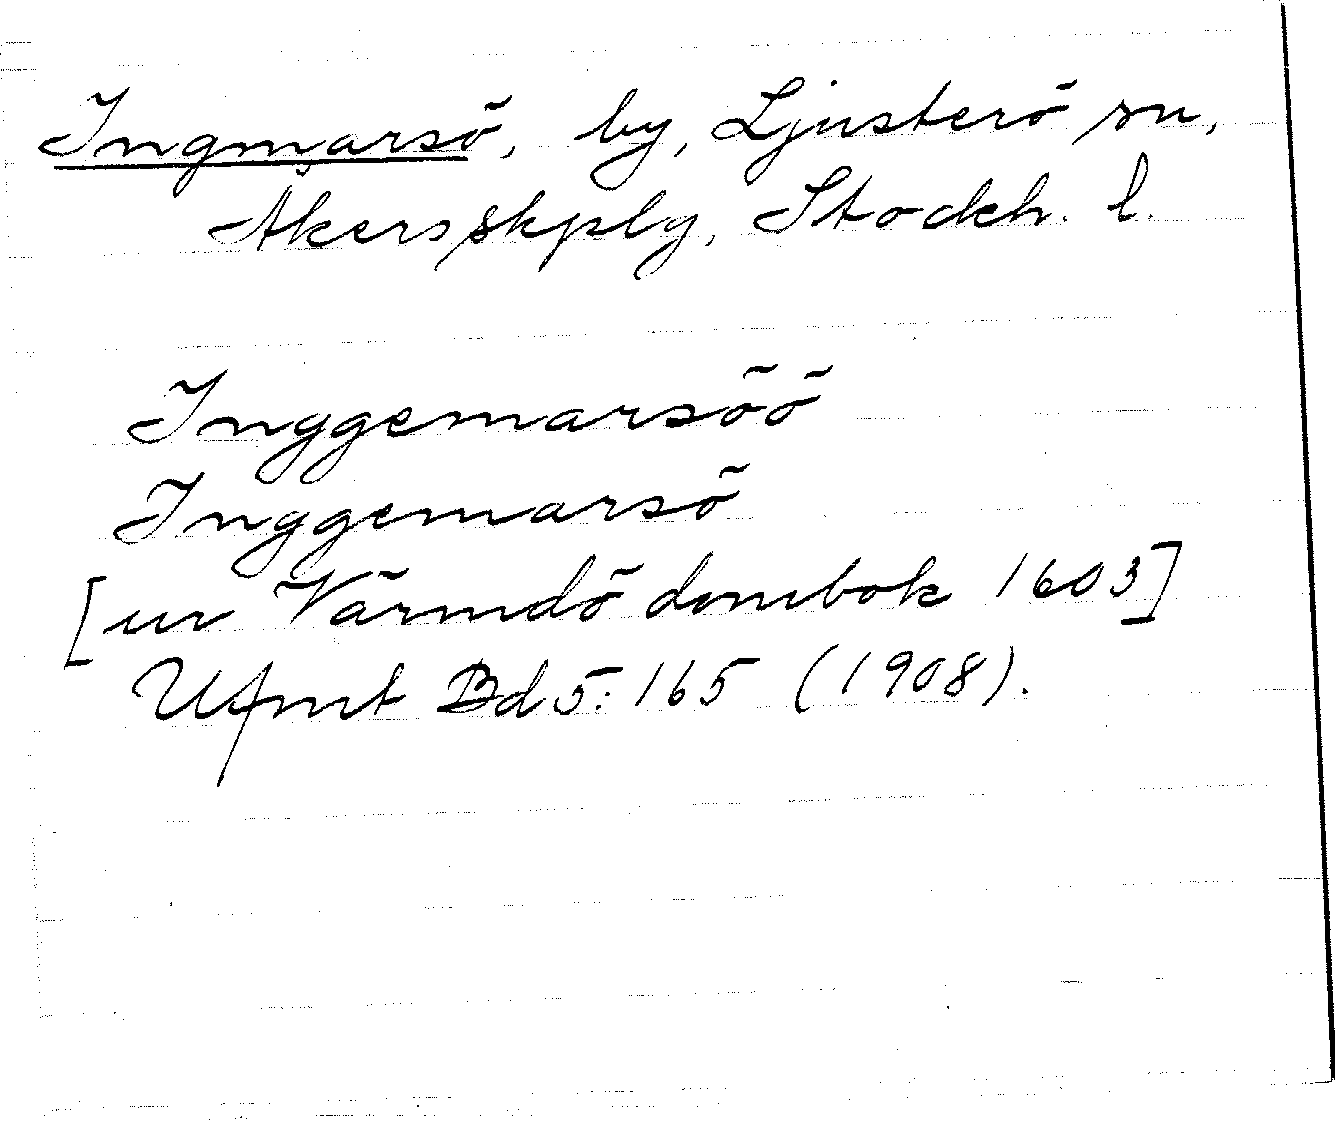 Ingmarsö, by, Ljusterö sn,
Åkers skplg, Stockh. l.
Inggemarsöö
Inggemarsö
[ur Värmdö dombok 1603]
Ufmt Bd 5: 165 (1908).